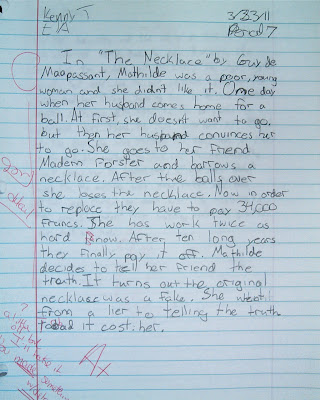 Kenny T 3/23/11
E/A Period 7
In "The Necklace" by Guy de
Maopassant, Mathilde was a poor, young
woman and she didn't like it. One day
when her husband comes home for a
ball. At first, she doesn't want to go,
but then her husband convinces her
to go. She goes to her friend
Madem Forster and barrows a
necklace. After the balls over
she loses the necklace. Now in order
to replace they have to pay 34,000
Francs. She has work twice as
hard know. After ten long years
they finally pay it off. Mathilde
decides to tell her friend the
trauth. It turns out the original
necklasc was a fake. She went
from a lier to telling the truth.
it cost her.
A+